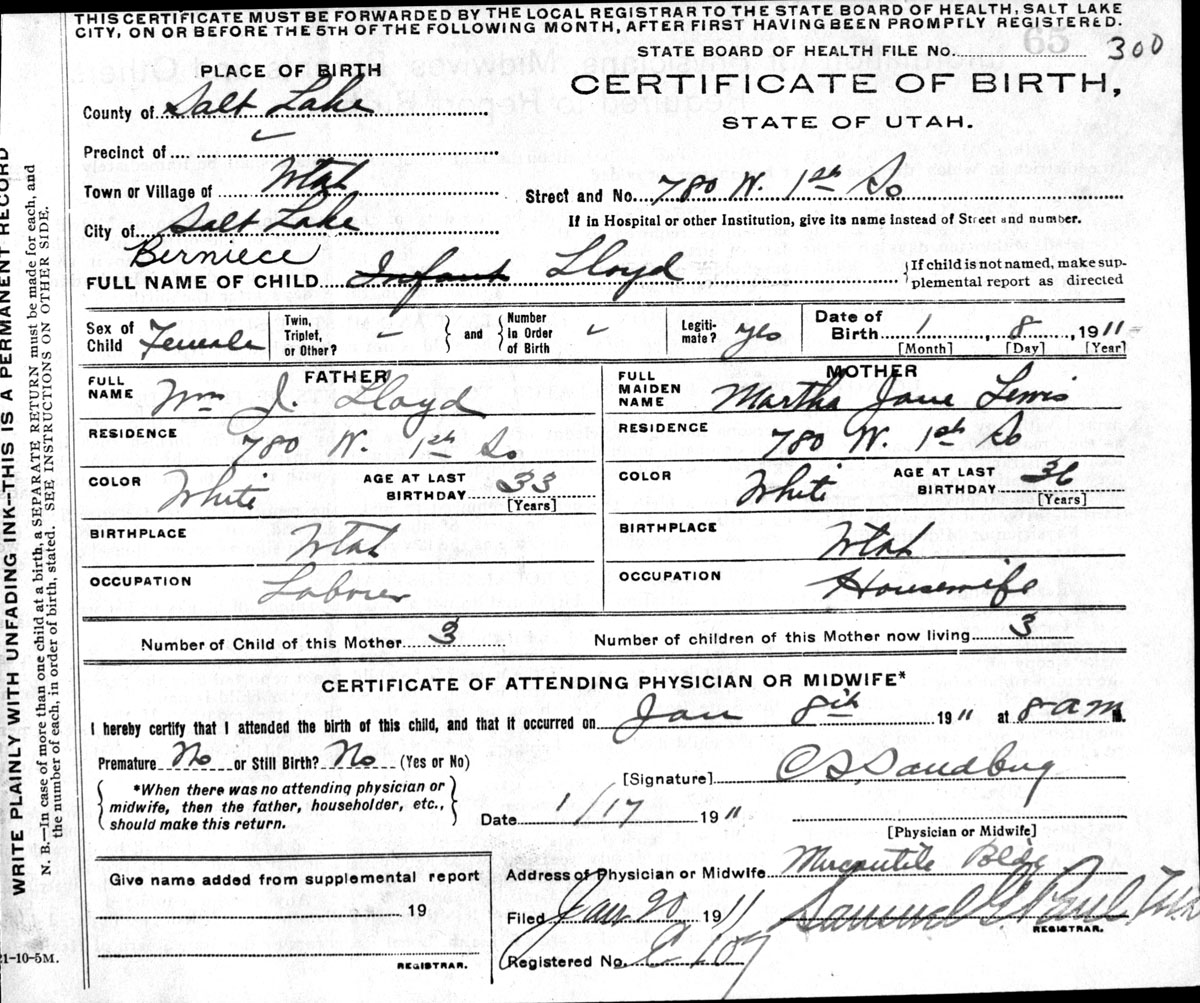 THIS CERTIFICATE MUST BE FORWARDED BY THE LOCAL REGISTRAR TO THE STATE BOARD OF HEALTH, SALT LAKE
CITY, ON OR BEFORE THE 5TH OF THE FOLLOWING MONTH, AFTER FIRST HAVING BEEN PROMPTLY REGISTERED.
STATE BOARD OF HEALTH FILE No. 65 300
PLACE OF BIRTH
CERTIFICATE OF BIRTH,
STATE OF UTAH.
County of Salt Lake
Precinct of
Town or Village of Utah
Street and No. 780 W. 1st So
City of Salt Lake
If in Hospital or other Institution, give its name instead of Street and number.
Berniece
FULL NAME OF CHILD Infant Lloyd
{If child is not named, make sup-
plemental report as directed
Sex of Child Female
Twin, Triplet, or Other?
and
Number in Order of Birth
Legiti-mate? yes
Date of Birth 1, 8, 1911
[Month] [Day] [Year]
FATHER
FULL NAME Wm J. Lloyd
RESIDENCE 780 W. 1st So
COLOR White
AGE AT LAST BIRTHDAY 33
[Years]
BIRTHPLACE Utah
OCCUPATION Laborer
MOTHER
FULL MAIDEN NAME Martha Jane Lewis
RESIDENCE 780 W. 1st So
COLOR White
AGE AT LAST BIRTHDAY 36
[Years]
BIRTHPLACE Utah
OCCUPATION Housewife
Number of Child of this Mother 3
Number of children of this Mother now living 3
CERTIFICATE OF ATTENDING PHYSICIAN OR MIDWIFE*
I hereby certify that I attended the birth of this child, and that it occurred on Jan 8th 1911 at 8 am M.
Premature No or Still Birth? No (Yes or No)
*When there was no attending physician or
midwife, then the father, householder, etc.,
should make this return.
[Signature]
Date 1/17 1911
[Physician or Midwife]
Give name added from supplemental report
19
REGISTRAR.
Address of Physician or Midwife Mercantile Bldg
Filed Jan 20 1911
Samuel G. Paul
REGISTRAR.
Registered No. 107
21-10-5M.
WRITE PLAINLY WITH UNFADING INK—THIS IS A PERMANENT RECORD
N. B.—In case of more than one child at a birth, a SEPARATE RETURN must be made for each, and
the number of each, in order of birth, stated. SEE INSTRUCTION ON OTHER SIDE.